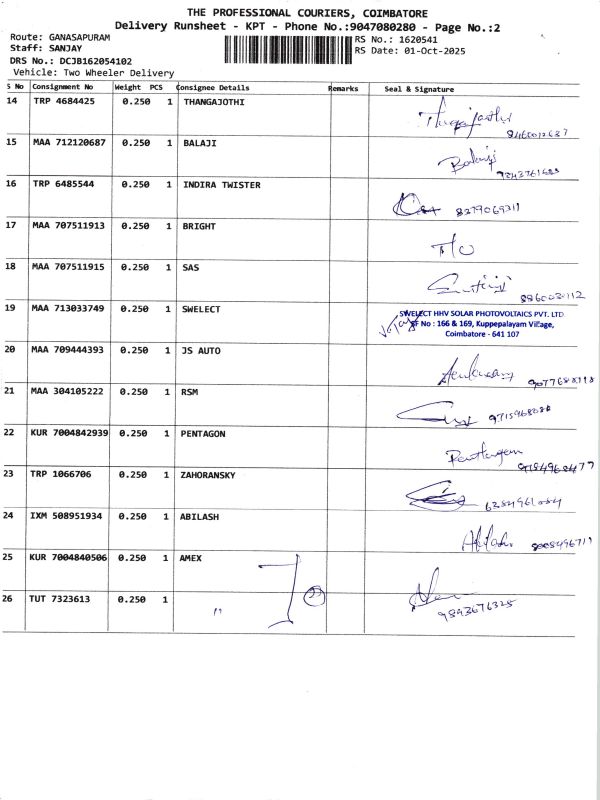 THE PROFESSIONAL COURIERS, COIMBATORE
Delivery Runsheet - KPT - Phone No.:9047080280 - Page No.:2
Route: GANASAPURAM
RS No.: 1620541
Staff: SANJAY
RS Date: 01-Oct-2025
DRS No.: DCJB162054102
Vehicle: Two Wheeler Delivery
S No Consignment No Weight PCS Consignee Details Remarks Seal & Signature
14 TRP 4684425 0.250 1 THANGAJOTHI
15 MAA 712120687 0.250 1 BALAJI Balaji
16 TRP 6485544 0.250 1 INDIRA TWISTER 8279069311
17 MAA 707511913 0.250 1 BRIGHT
18 MAA 707511915 0.250 1 SAS
19 MAA 713033749 0.250 1 SWELECT
SWELECT HHV SOLAR PHOTOVOLTAICS PVT. LTD
SF No : 166 & 169, Kuppepalayam Village,
Coimbatore - 641 107
20 MAA 709444393 0.250 1 JS AUTO
21 MAA 304105222 0.250 1 RSM
22 KUR 7004842939 0.250 1 PENTAGON
23 TRP 1066706 0.250 1 ZAHORANSKY
24 IXM 508951934 0.250 1 ABILASH
25 KUR 7004840506 0.250 1 AMEX
26 TUT 7323613 0.250 1 " 9843676325